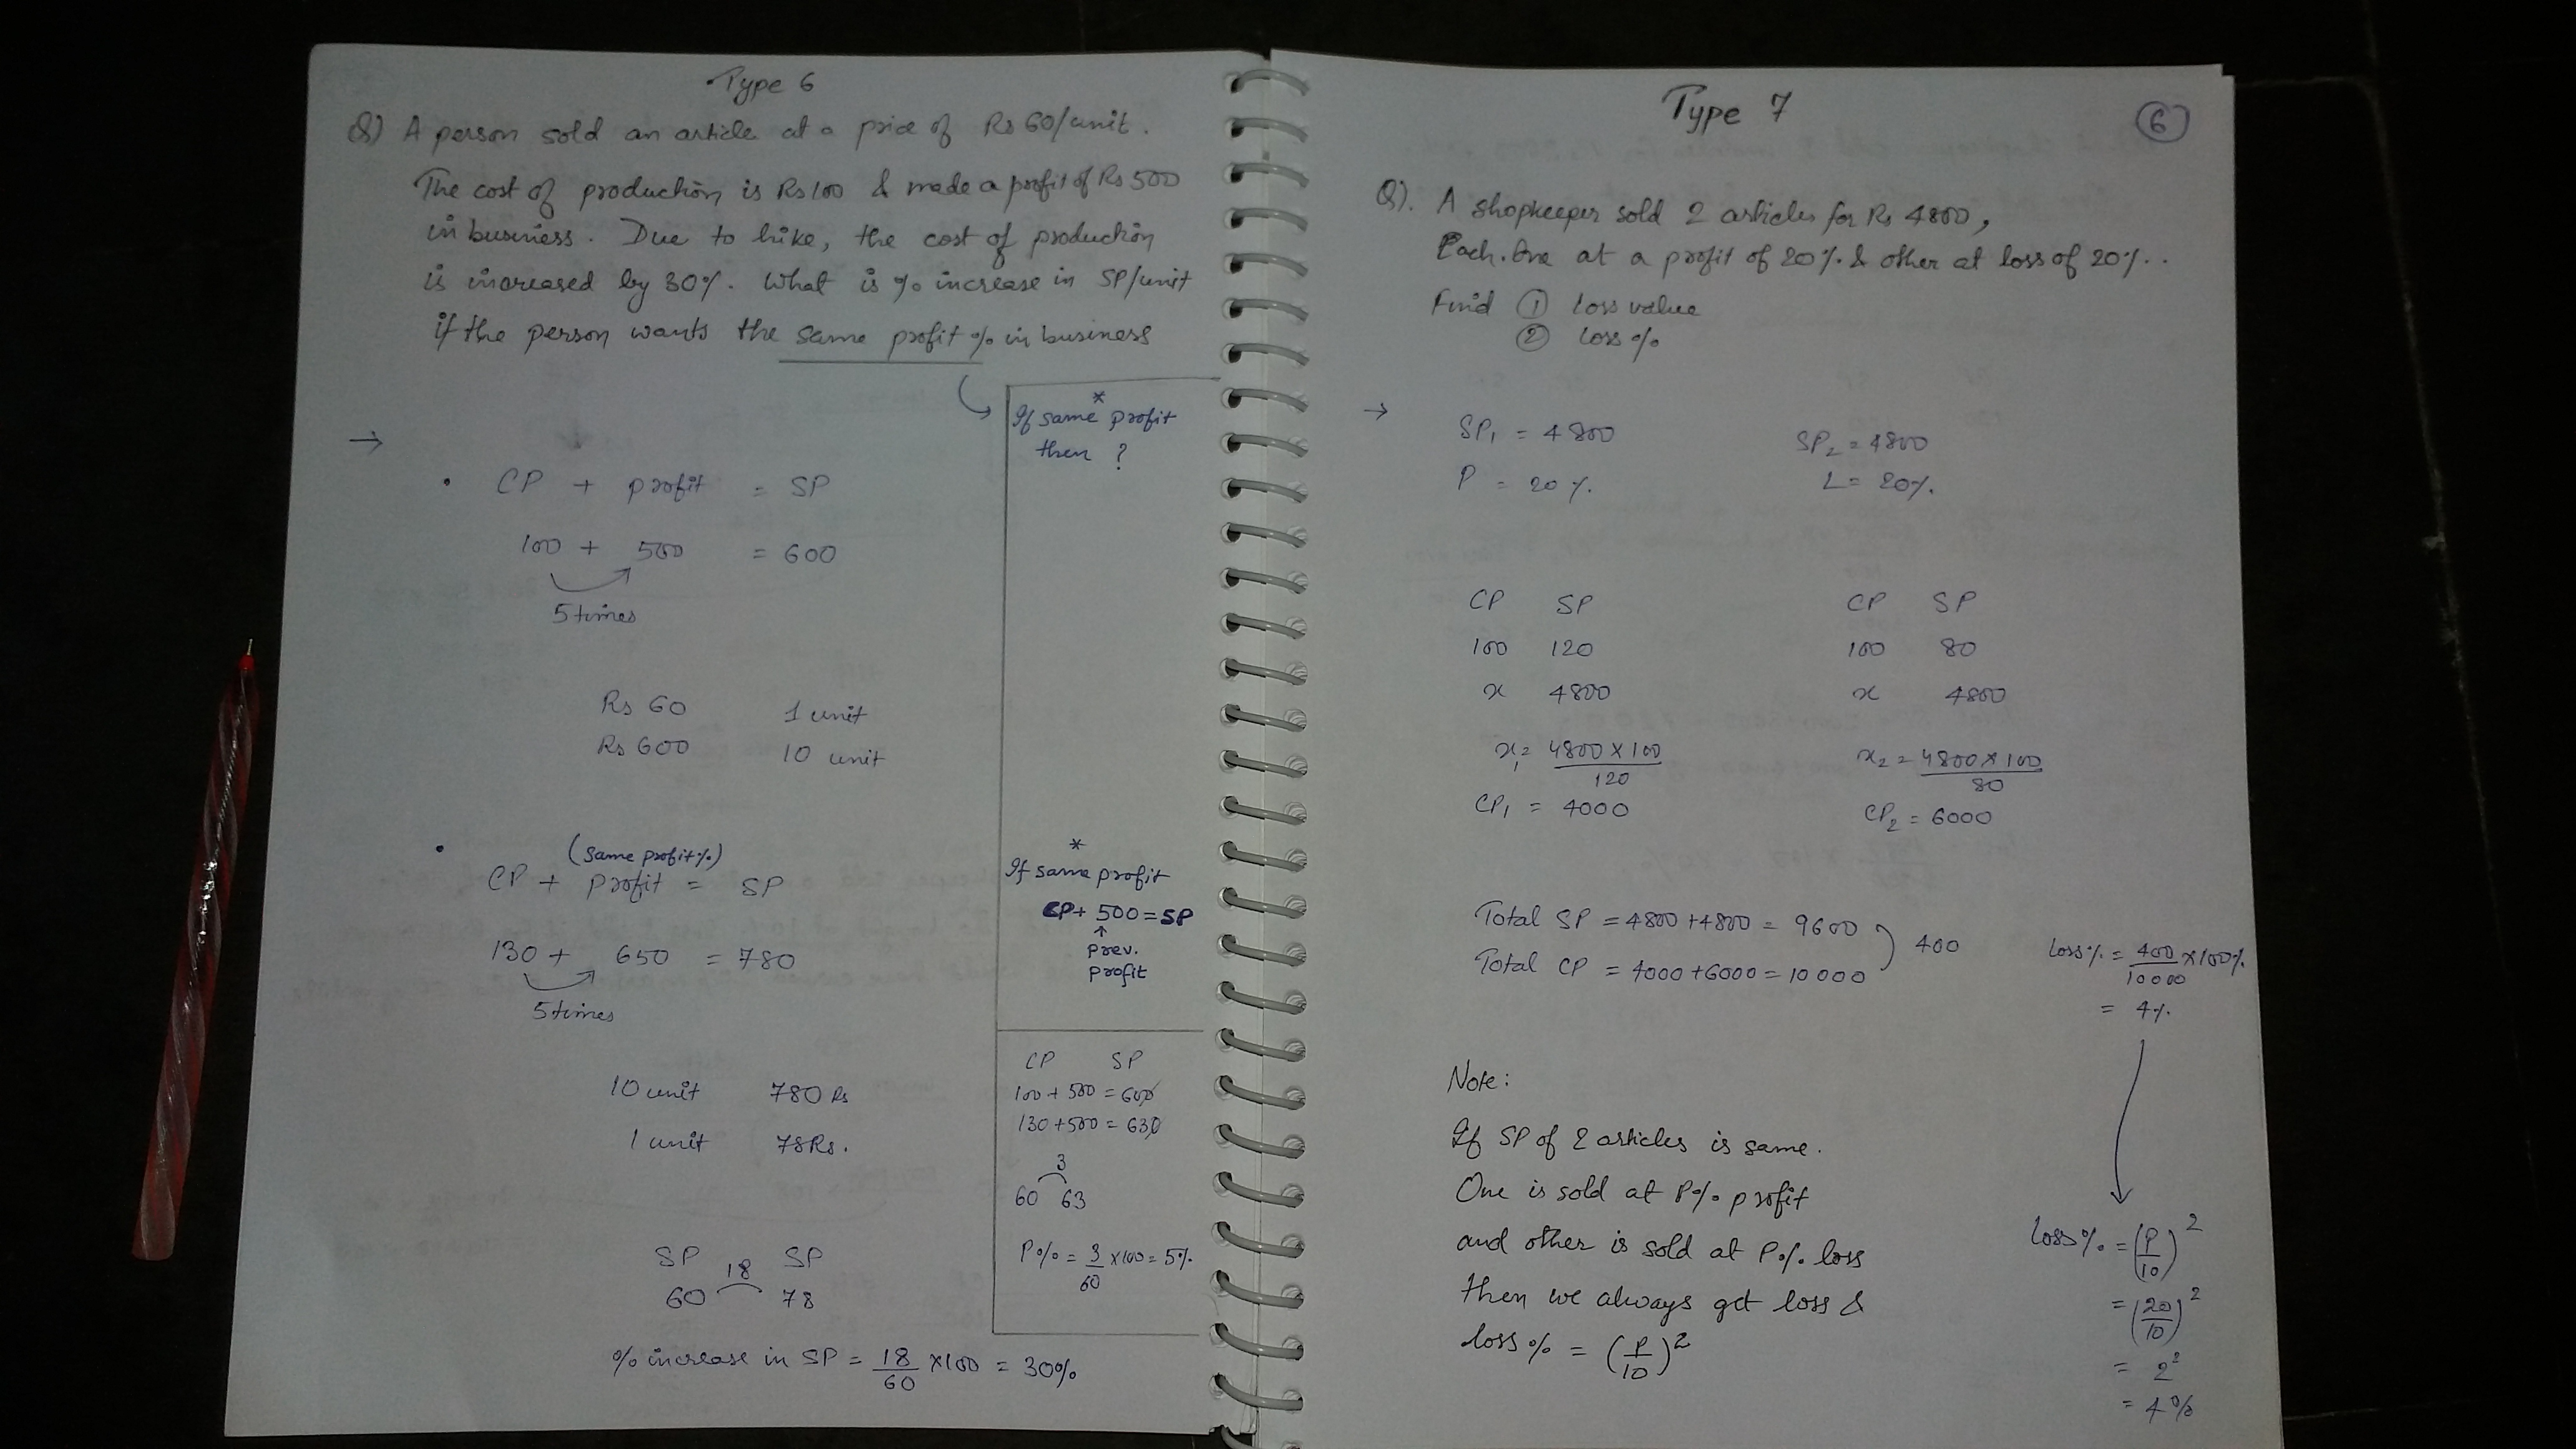 Type 6
Q) A person sold an article at a price of Rs 60/unit.
The cost of production is Rs 100 & made a profit of Rs 500
in business. Due to hike, the cost of production
is increased by 30%. What is % increase in SP/unit
if the person wants the same profit % in business
→
• CP + profit = SP
100 + 500 = 600
5 times
Rs 60 1 unit
Rs 600 10 unit
• (same profit%)
CP + profit = SP
130 + 650 = 780
5 times
10 unit 780 Rs
1 unit 78 Rs.
SP SP
18
60 78
% increase in SP = 18/60 × 100 = 30%
*
If same profit
then ?
*
If same profit
CP + 500 = SP
↑
prev.
profit
CP SP
100 + 500 = 600
130 + 500 = 630
3
60 63
P% = 3/60 × 100 = 5%
Type 7
6
Q). A shopkeeper sold 2 articles for Rs 4800,
Each. One at a profit of 20% & other at loss of 20%.
Find ① loss value
② loss %
→
SP₁ = 4800 SP₂ = 4800
P = 20% L = 20%.
CP SP CP SP
100 120 100 80
x 4800 x 4800
x₁ = 4800 × 100/120 x₂ = 4800 × 100/80
CP₁ = 4000 CP₂ = 6000
Total SP = 4800 + 4800 = 9600
Total CP = 4000 + 6000 = 10 000
400
loss% = 400/10000 × 100%
= 4%
Note:
If SP of 2 articles is same.
One is sold at P% profit
and other is sold at P% loss
then we always get loss &
loss % = (P/10)²
loss% = (P/10)²
= (20/10)²
= 2²
= 4%